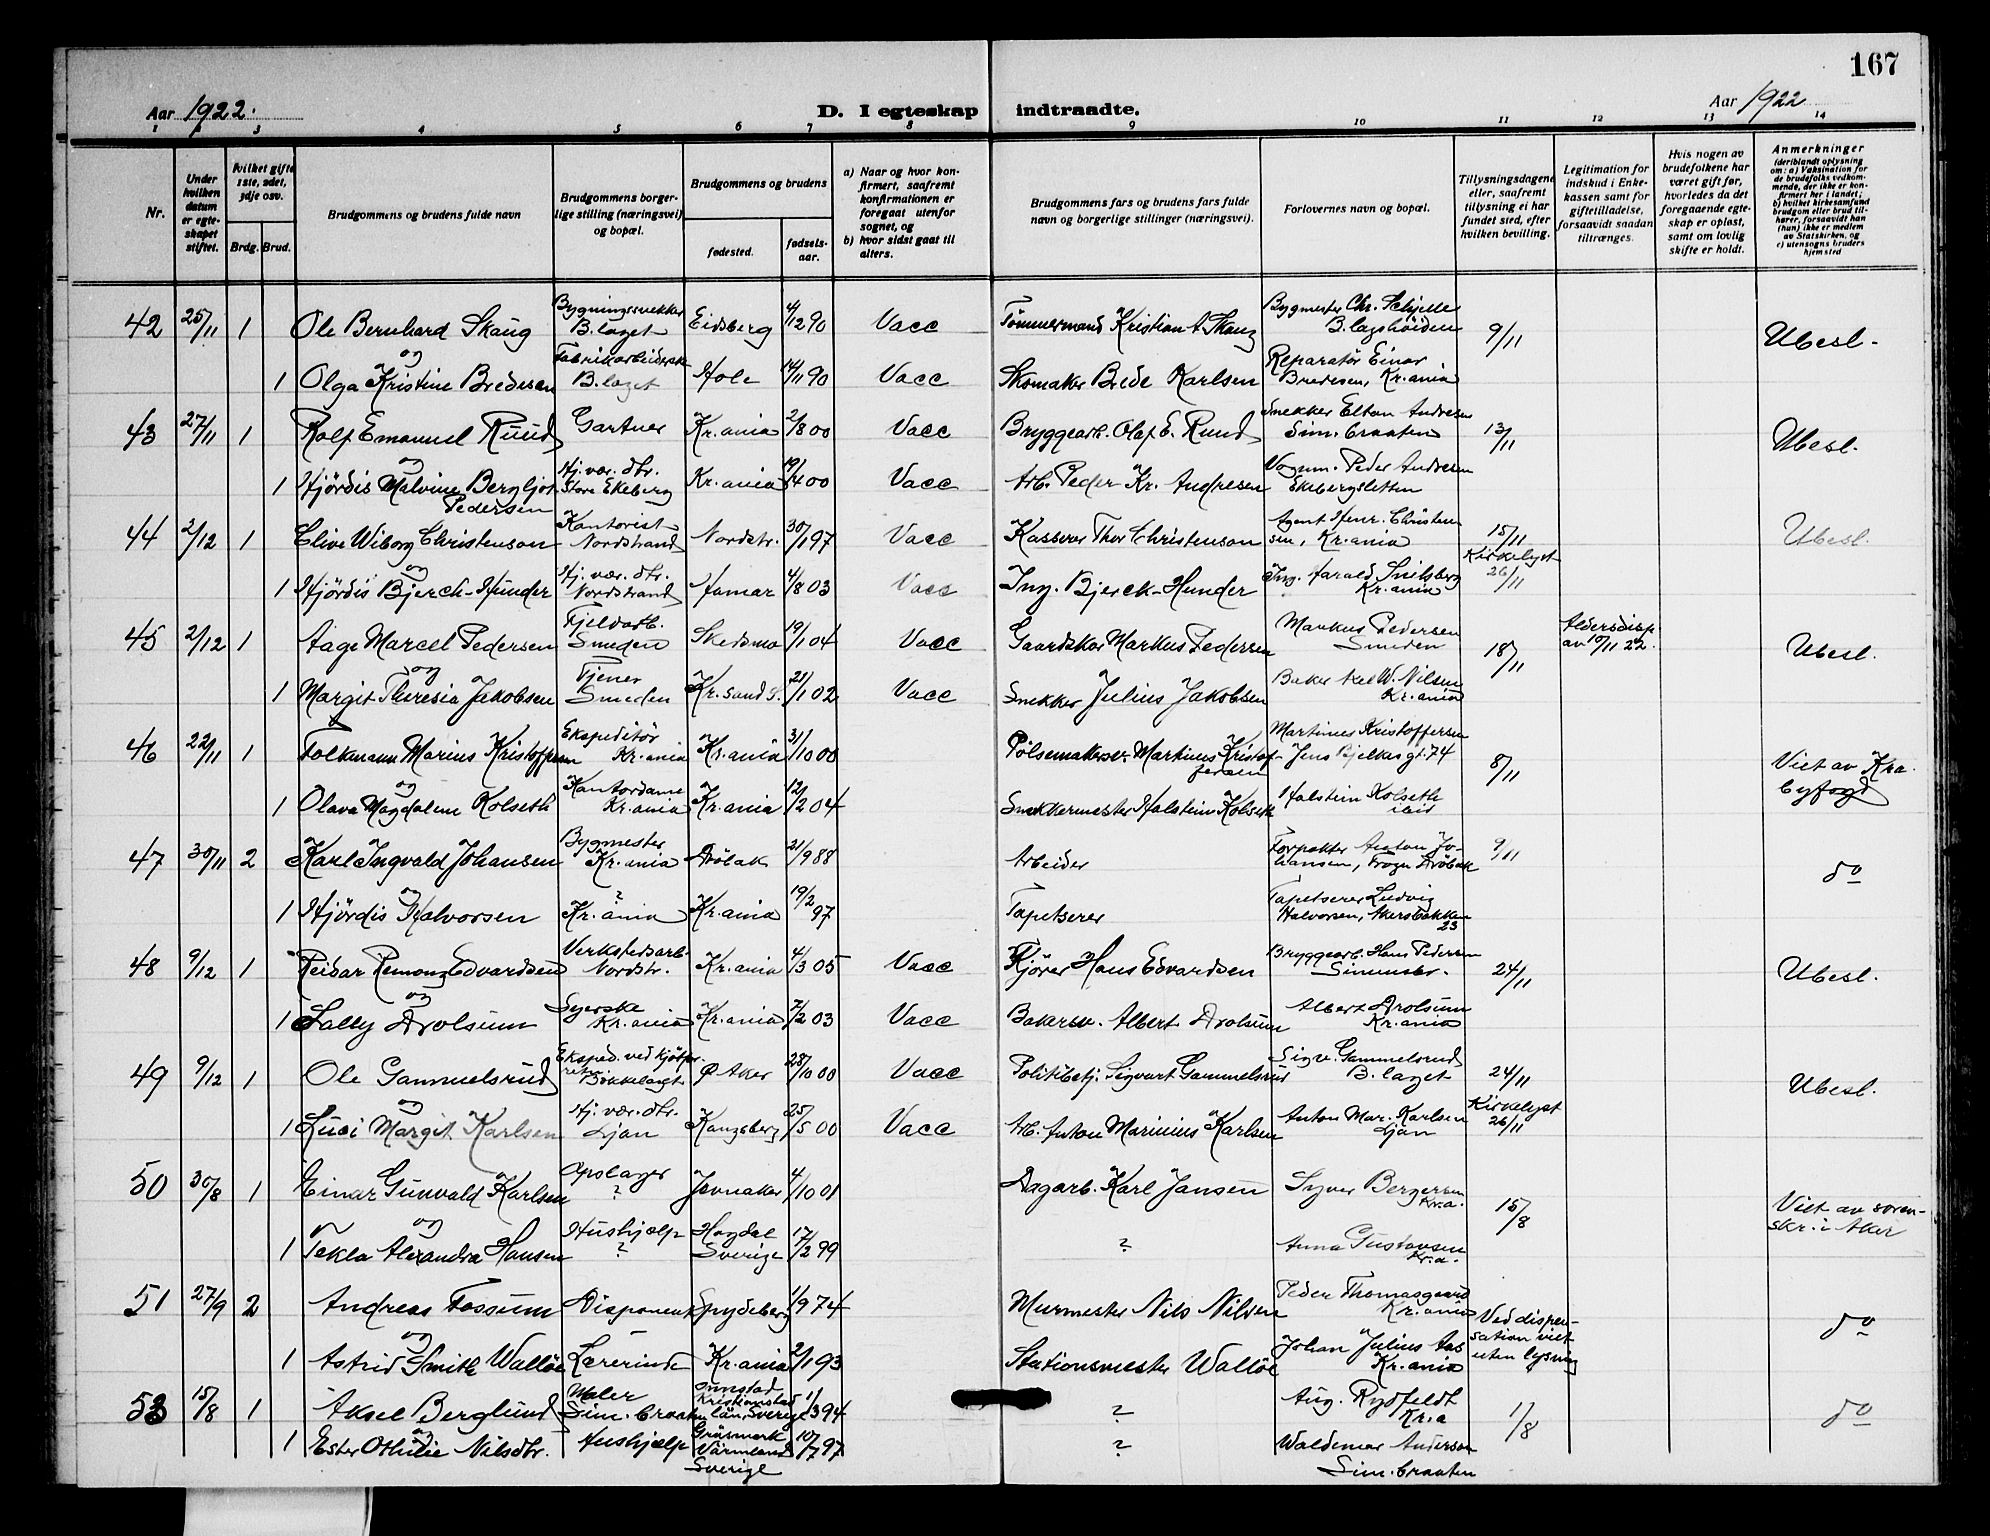 167
Aar 1922.
D. I egteskap indtraadte.
Aar 1922
1 2 3 4 5 6 7 8 9 10 11 12 13 14
Nr.
Under hvilken datum er egteskapet stiftet.
hvilket gifte 1ste, 2det, 3dje osv.
Brdg. Brud.
Brudgommens og brudens fulde navn
Brudgommens borgerlige stilling (næringsvei) og bopæl.
Brudgommens og brudens
fødested.
fødselsaar.
a) Naar og hvor konfirmert, saafremt konfirmationen er foregaat utenfor sognet, og
b) hvor sidst gaat til alters.
Brudgommens fars og brudens fars fulde navn og borgerlige stillinger (næringsvei).
Forlovernes navn og bopæl.
Tillysningsdagene eller, saafremt tillysning ei har fundet sted, efter hvilken bevilling.
Legitimation for indskud i Enkekassen samt for giftetilladelse, forsaavidt saadan tiltrænges.
Hvis nogen av brudefolkene har været gift før, hvorledes da det foregaaende egteskap er opløst, samt om lovlig skifte er holdt.
Anmerkninger
(deriblandt oplysning om: a) Vaksination for de brudefolks vedkommende, der ikke er konfirmert her i landet; b) hvilket kirkesamfund brudgom eller brud tilhører, forsaavidt han (hun) ikke er medlem av Statskirken, og c) utensogns bruders hjemsted
42 25/11 1 Ole Bernhard Skaug Bygningssnekker B.laget Eidsberg 4/12 90 Vacc Tømmermand Kristian A. Skaug Bygmester Chr. Schjelle B.lagshöiden 9/11 Ubesl.
og
1 Olga Kristine Bredesen Fabrikarbeiderske B.laget Hole 14/11 90 Vacc Skomaker Brede Karlsen Reparatör Einar Bredesen, Kr.ania
43 27/11 1 Rolf Emanuel Ruud Gartner Kr.ania 2/8 00 Vacc Bryggearb. Olaf E. Ruud Snekker Elton Andresen Sim. braaten 13/11 Ubesl.
og
1 Hjördis Malvine Bergljot Pedersen Hj. vær. dtr. Store Ekeberg Kr.ania 19/4 00 Vacc Arb. Peder Kr. Andresen Vognm. Peder Andresen Ekebergsletten
44 2/12 1 Clive Wiborg Christenson Kontorist Nordstrand Nordstr. 30/1 97 Vacc Kasserer Thor Christenson Agent Henr. Christensen, Kr.ania 15/11 Ubesl.
og
1 Hjördis Bjerck-Hunder Hj. vær. dtr. Nordstrand Hamar 4/8 03 Vacc Ing. Bjerck-Hunder Ing. Harald Kr.ania Kirkelyst 26/11
45 2/12 1 Aage Marcel Pedersen Fjeldarb. Smeden Skedsmo 19/1 04 Vacc Gaardskar Markus Pedersen Markus Pedersen Smeden 18/11 Aldersdisp. av 10/11 22. Ubesl.
og
1 Margit Theresia Jakobsen Tjener Smeden Kr.sand S. 21/1 02 Vacc Snekker Julius Jakobsen Baker Axel W. Nilsen Kr.ania
46 22/11 1 Folkmann Marius Kristoffersen Ekspeditör Kr.ania Kr.ania 31/10 00 Pölsemaker Martinus Kristoffersen Martinus Kristoffersen Jens Bjelkes gt. 74 8/11 Viet av Kra. byfogd
og
1 Olava Magdalene Kolseth Kontordame Kr.ania Kr.ania 12/2 04 Snekkermester Halstein Kolseth Halstein Kolseth ibid
47 30/11 2 Karl Ingvald Johansen Bygmester Kr.ania Dröbak 21/9 88 Arbeider Forpakter Anton Johansen, Frogn Dröbak 9/11 do
og
1 Hjördis Halvorsen ? Kr.ania Kr.ania 19/2 97 Tapetserer Tapetserer Ludvig Halvorsen, Akersbakken 23
48 9/12 1 Reidar Remong Edvardsen Verkstedsarb. Nordstr. Kr.ania 4/3 05 Vacc Kjörer Hans Edvardsen Bryggearb. Hans Pedersen 24/11 Ubesl.
og
1 Sally Drolsum Syerske Kr.ania Kr.ania 7/2 03 Vacc Bakersv. Albert Drolsum Albert Drolsum Kr.ania
49 9/12 1 Ole Gammelsrud Eksped. ved kjötfor. Bækkelaget Ø Aker 28/10 00 Vacc Politibetj. Sigvart Gammelsrud Sigv. Gammelsrud B.laget 24/11 Ubesl.
og
1 Lusi Margit Karlsen Hj. vær. dtr. Ljan Kongsberg 25/5 00 Vacc Arb. Anton Marinius Karlsen Anton Mar. Karlsen Ljan Kirkelyst 26/11
50 30/8 1 Einar Gunvald Karlsen Opslager ? Jevnaker 4/10 01 Dagarb. Karl Jansen Syver Bergersen Kr.a. 15/8 Viet av sorenskr. i Aker
og
1 Tekla Alexandra Hansen Hushjælp ? Hogdal Sverige 17/2 99 ? Anna Gustavsen Kr.a.
51 27/9 2 Andreas Fossum Disponent Spydeberg 1/9 74 Murmester Nils Nilsen Peder Thomasgaard Kr.ania Ved dispensation viet uten lysning do
og
1 Astrid Smith Wallöe Lærerinde Kr.ania 2/1 93 Stationsmester Wallöe Johan Julius Aas Kr.ania
53 15/8 1 Aksel Berglund Maler Sim. braaten Kristianstad län, Sverige 1/3 94 ? Aug. Rydfeldt Kr.a 1/8 do
og
1 Ester Othilie Nilsdtr. Hushjælp Gräsmark Värmland Sverige 10/7 97 ? Waldemar Anderson Sim. braaten